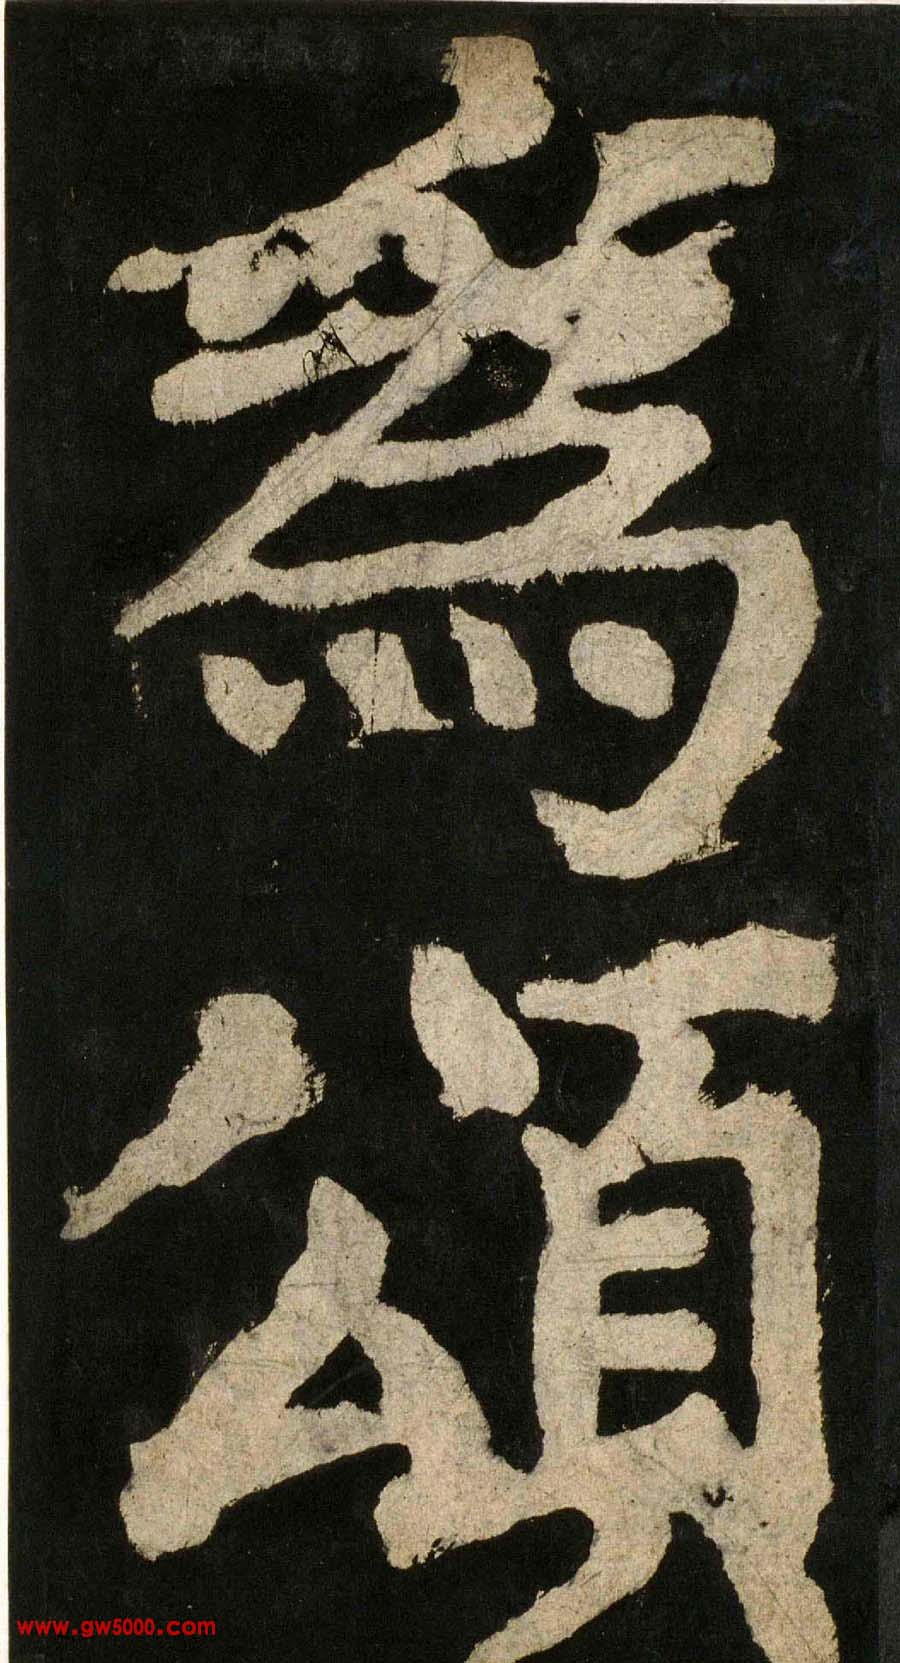 爲
頌
www.gw5000.com